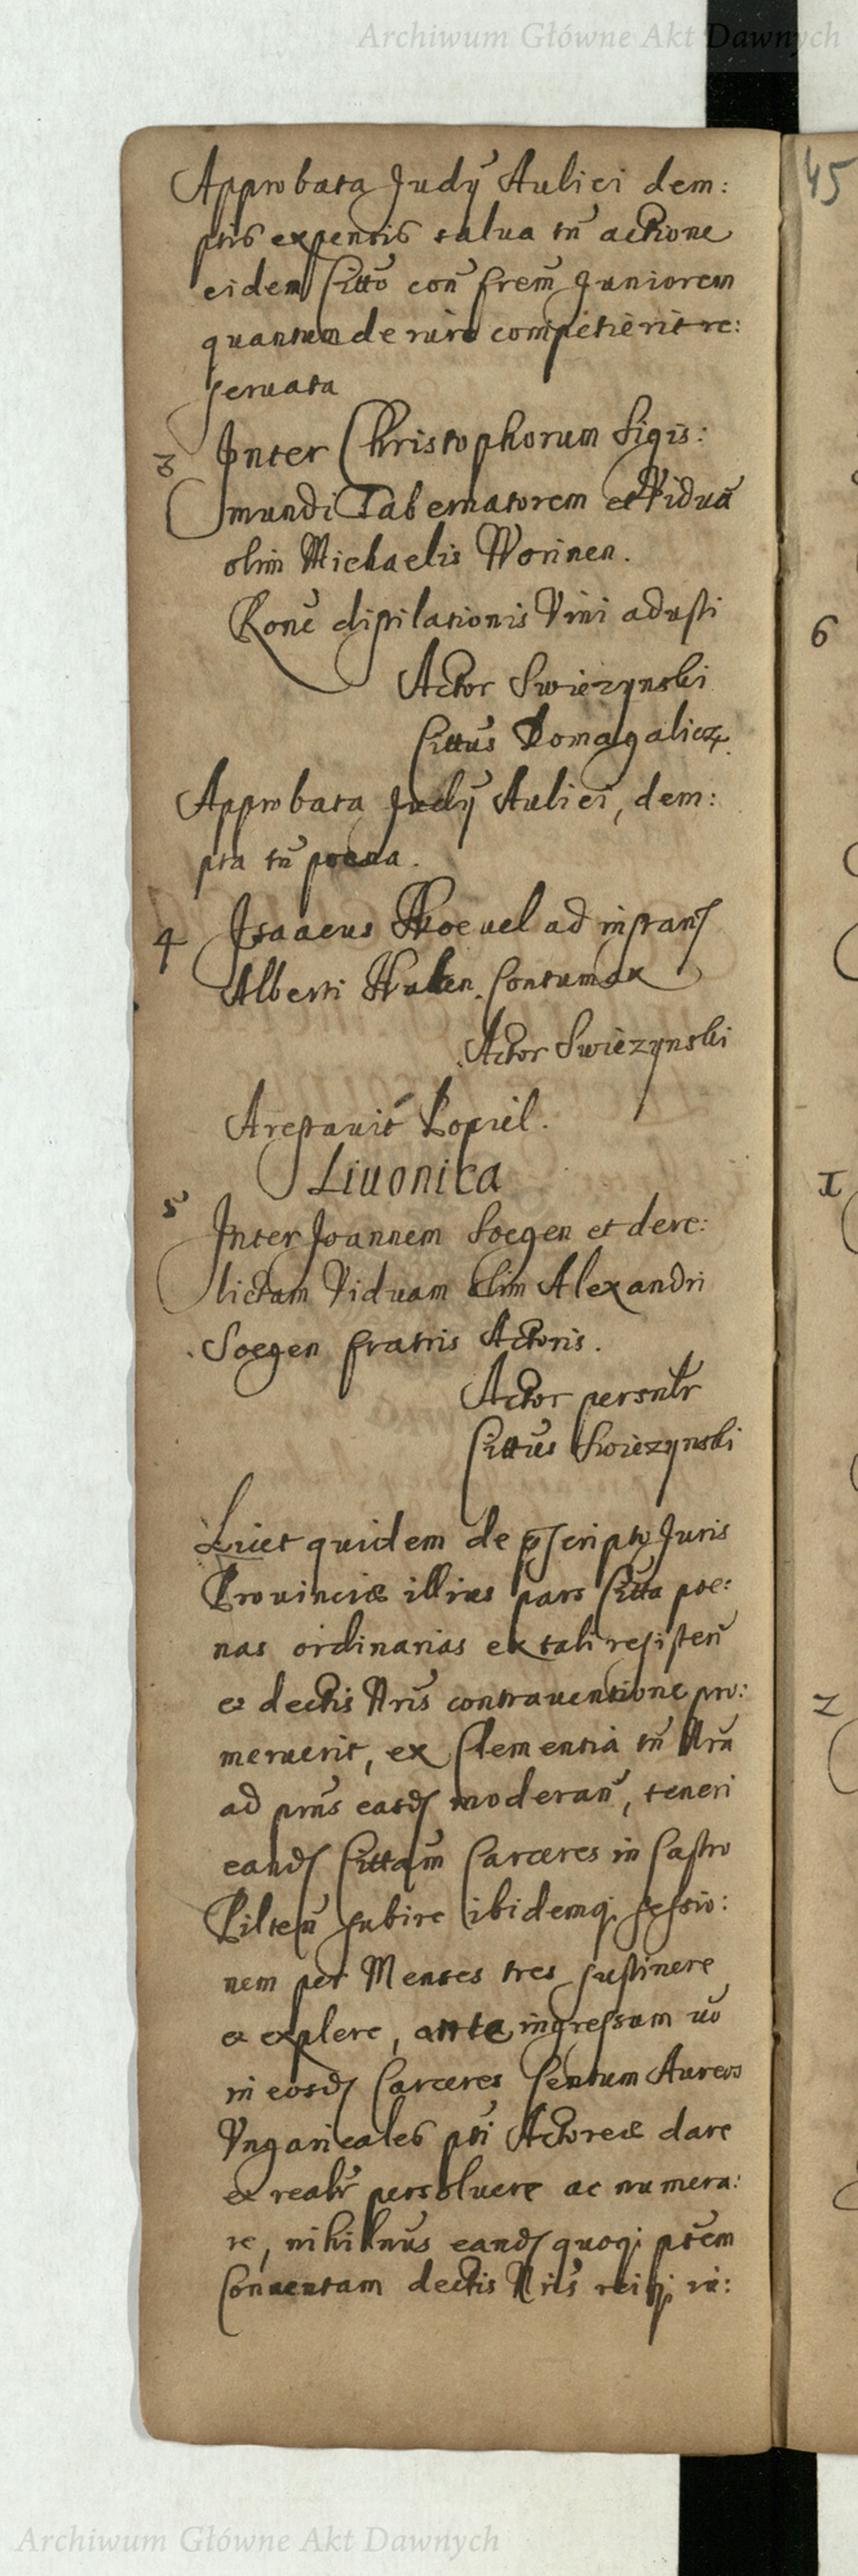 Archiwum Główne Akt Dawnych
45
Approbata Judÿ Aulici dem:
ptis expensis salua tn̄ actione
eidem Citto con̄ frem̄ Juniorem
quantum de iure competierit re:
seruata
3 Inter Christophorum Sigis:
mundi Tabernatorem et Viduā
olim Michaelis Worinen.
Rone̅ distilationis Vini adusti
Actor Swiezynski
Cittus Domagalicz.
Approbata Judÿ Aulici, dem:
pta tn̄ poena.
4 Isaacus Woeuel ad instan
Alberti Contumax
Actor Swiezynski
Arestauit Popiel.
Liuonica
5 Inter Joannem Soegen et dere:
lictam Viduam olim Alexandri
Soegen fratris Actoris.
Actor personlr
Cittus Swiezynski
Licet quidem de pscripto Juris
Prouinciæ illius pars Citta poe:
nas ordinarias ex tali resisten̄
et dectis Nris̄ contrauentione pro:
meruerit, ex Clementia tn̄ Nra̅
ad prn̄s easd moderan̄, teneri
eand Cittam̄ Carceres in Castro
Pilten̄ subire ibidemq sessio:
nem per Menses tres sustinere
et explere, ante ingressum uo̅
in eosd Carceres Centum Aureos
Vngaricales pti̅ Actoreæ dare
et realr̄ persoluere ac numera:
re, nihiln̄us eand quoq ptem̄
Conuentam dectis Nris̄ reiq iu:
6
1
2
Archiwum Główne Akt Dawnych